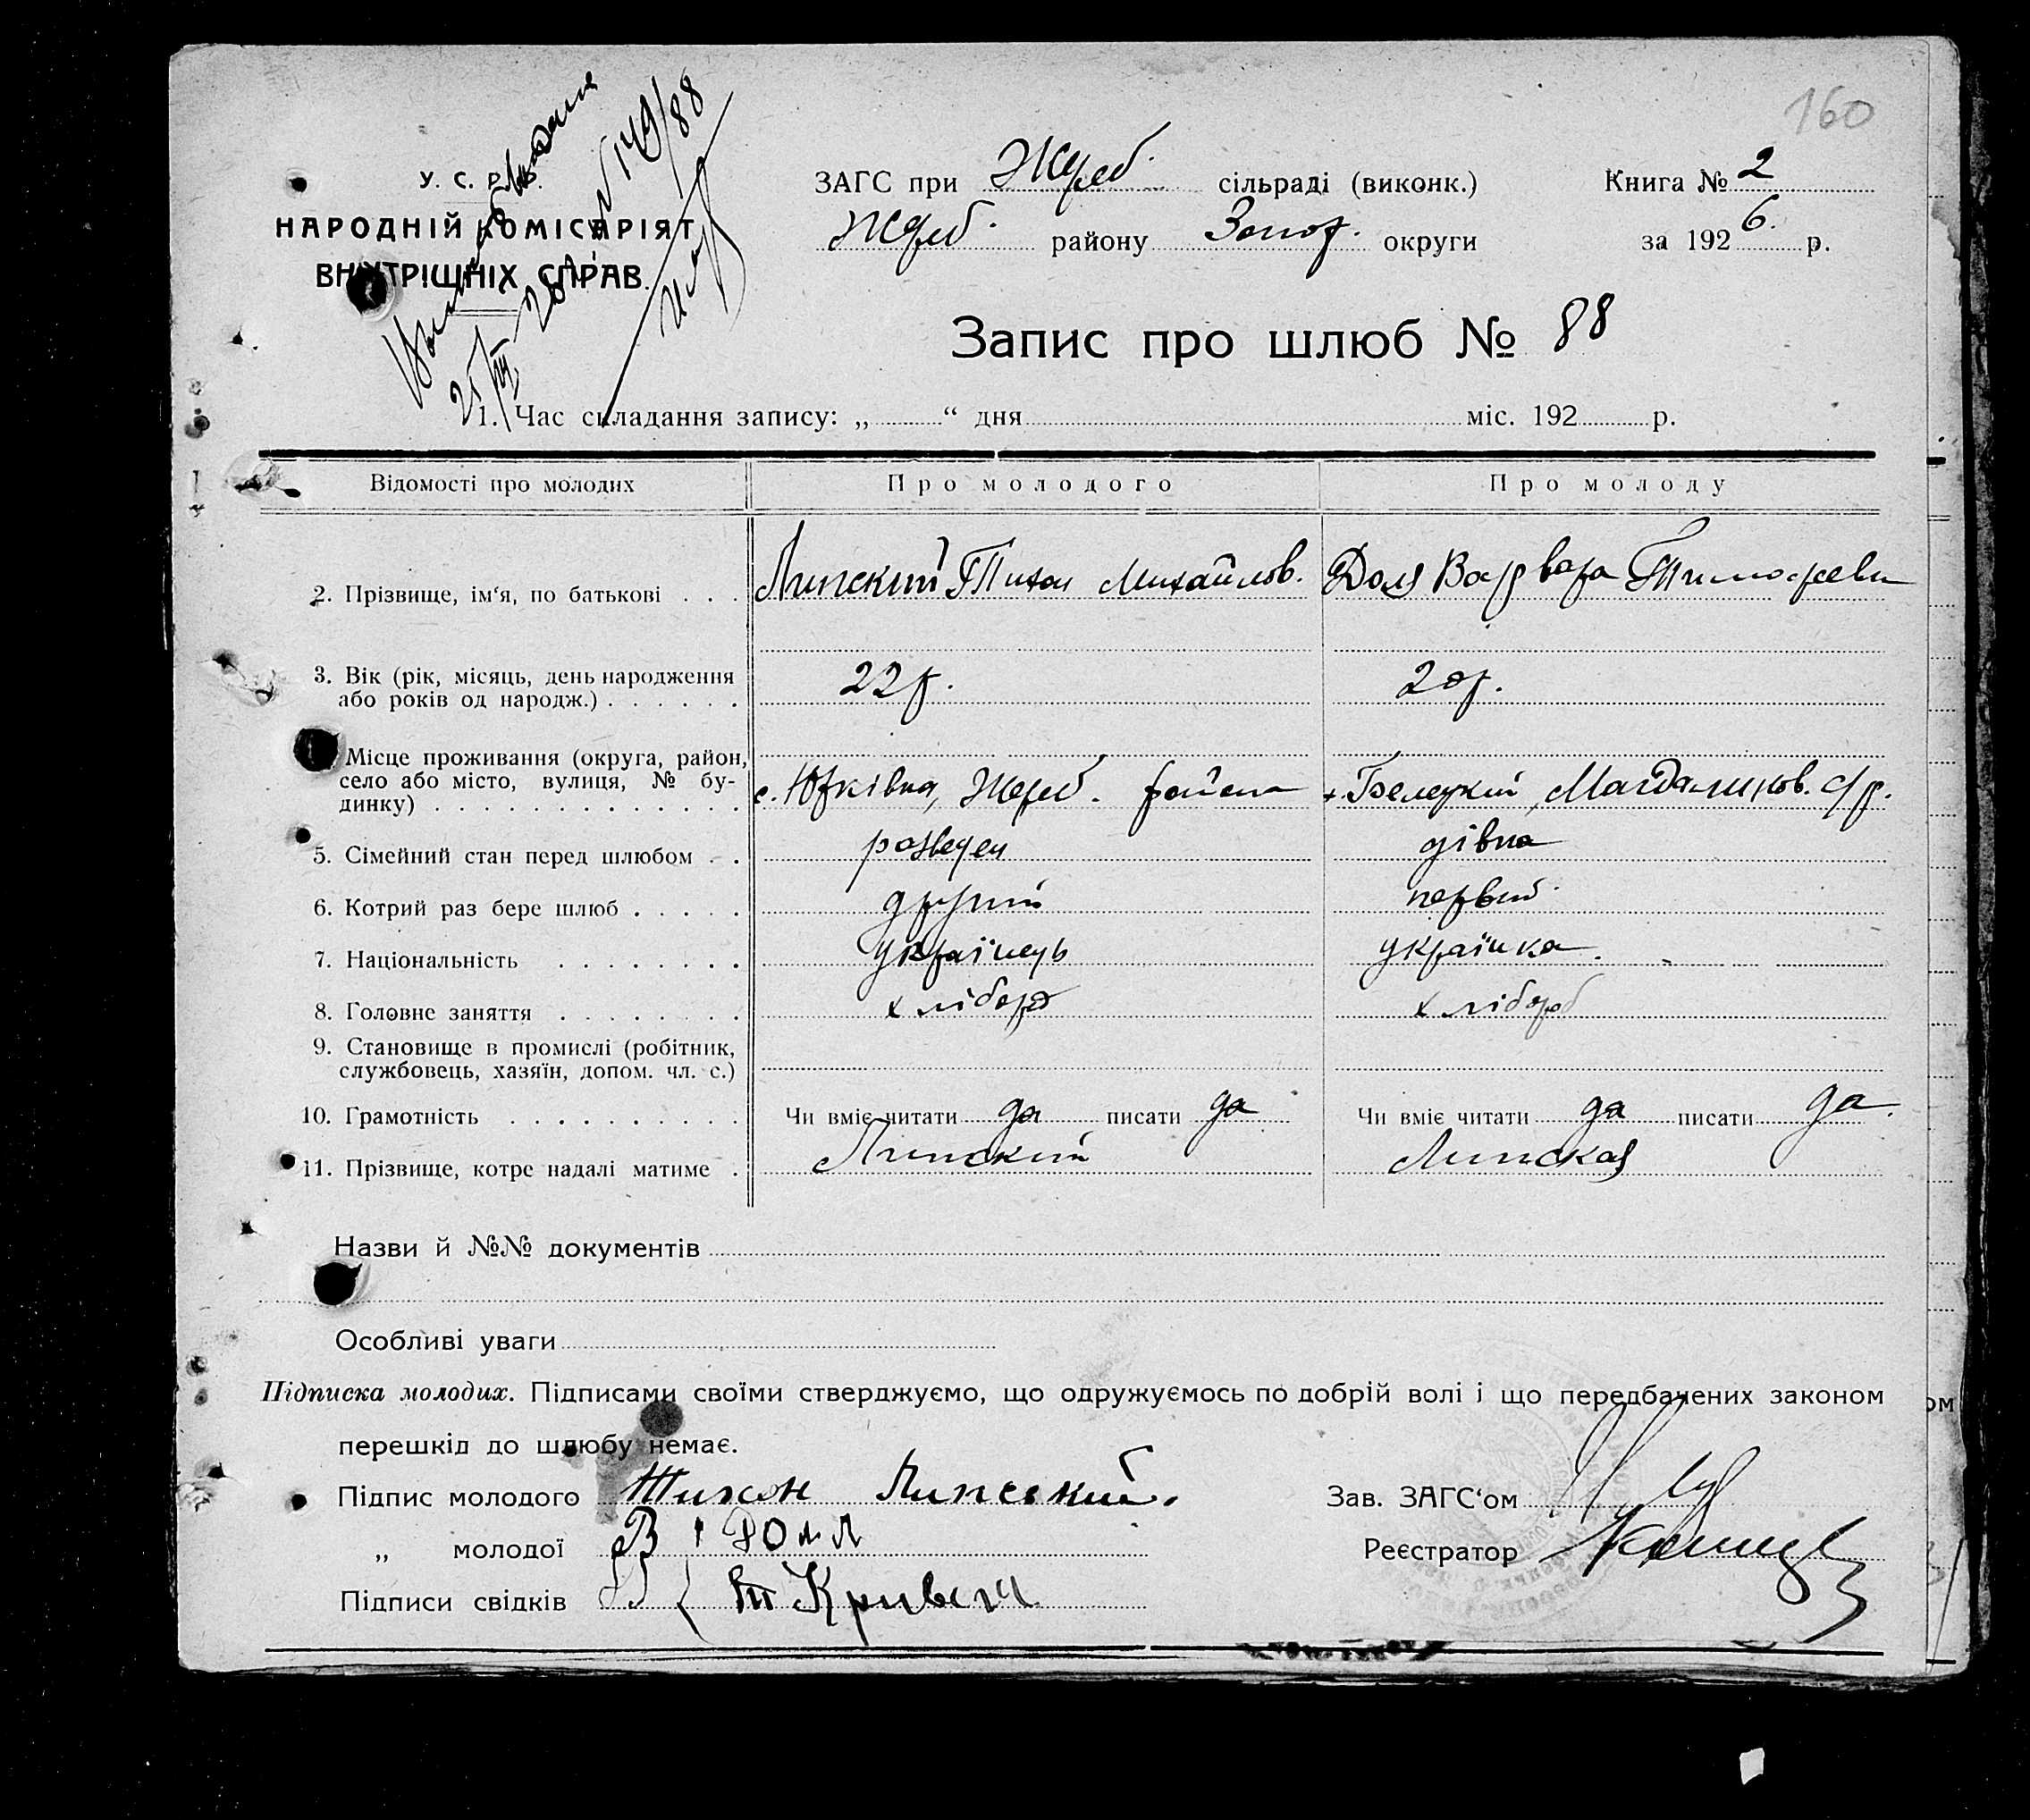 160
У. С. Р. Р.
НАРОДНІЙ КОМІСАРІЯТ
ВНУТРІШНІХ СПРАВ.
25/III 26 № 149/88
ЗАГС при Жереб. сільраді (виконк.) Книга № 2
Жереб. району Запор. округи за 1926. р.
Запис про шлюб № 88
1. Час складання запису: „ “ дня міс. 192 р.
Відомості про молодих Про молодого Про молоду
2. Прізвище, ім‘я, по батькові Липский Тихон Михайлов. Доля Варвара Тимофеевн
3. Вік (рік, місяць, день народження
або років од народж.) 22 р. 20 р.
Місце проживання (округа, район,
село або місто, вулиця, № бу-
динку) с. Юрківка, Жереб. района х. Белецкий, Магдалинов. с/р.
5. Сімейний стан перед шлюбом розведен дівка
6. Котрий раз бере шлюб другий первий
7. Національність українець українка.
8. Головне заняття хлібороб хлібороб
9. Становище в промислі (робітник,
службовець, хазяїн, допом. чл. с.)
10. Грамотність Чи вміє читати да писати да Чи вміє читати да писати да.
11. Прізвище, котре надалі матиме Липский Липская
Назви й №№ документів
Особливі уваги
Підписка молодих. Підписами своїми стверджуємо, що одружуємось по добрій волі і що передбачених законом
перешкід до шлюбу немає.
Підпис молодого Тихон Липський. Зав. ЗАГС‘ом
„ молодої В Доля Реєстратор
Підписи свідків